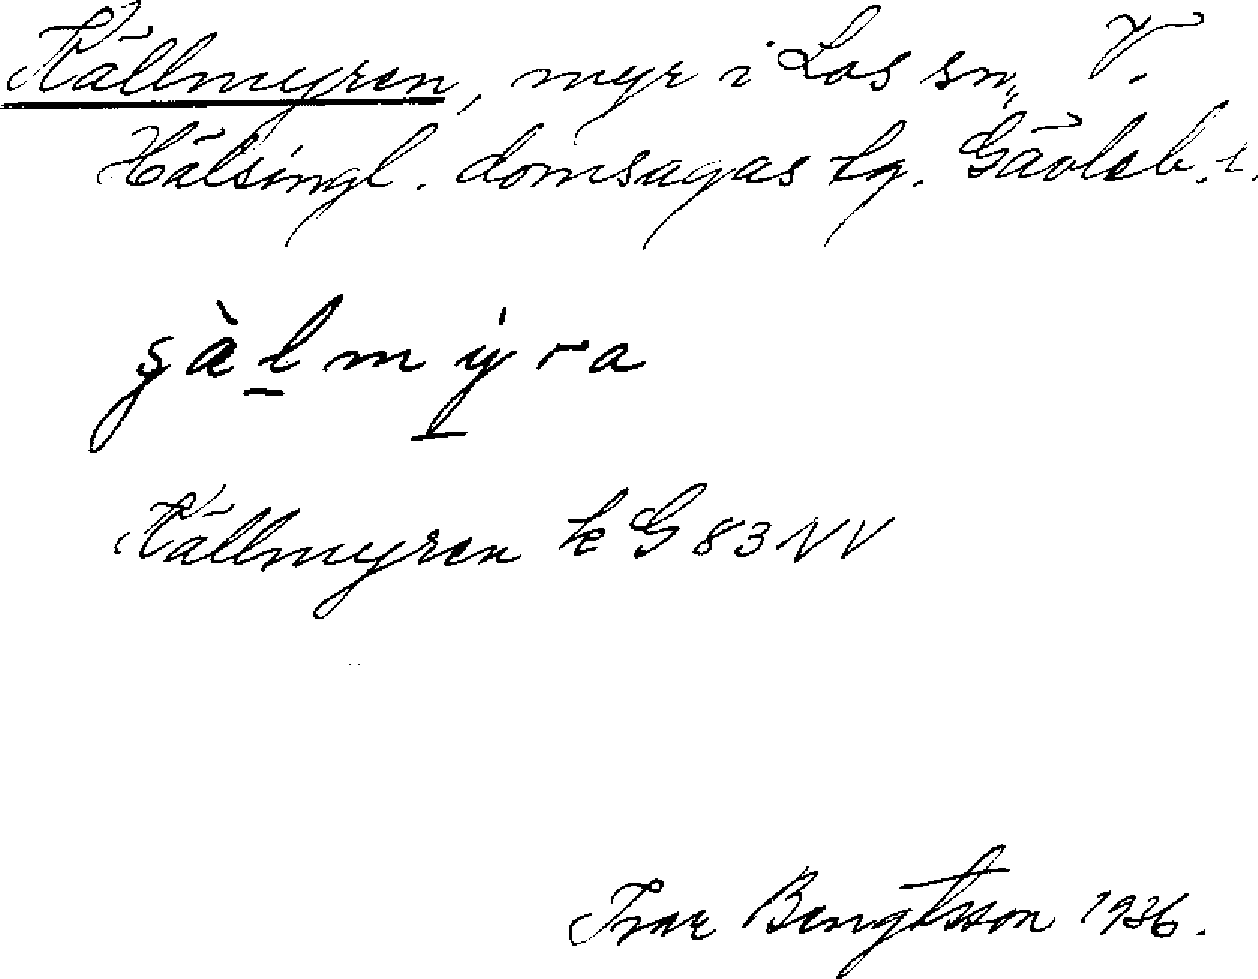 Källmyren, myr i Los sn, V.
Hälsingl. domsagas tg. Gävleb. l.
Källmyren k G 83 NV
Ivar Bengtsson 1936.